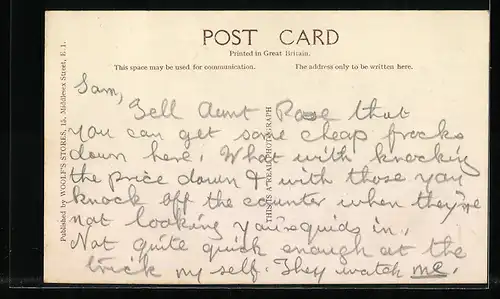 POST CARD
Printed in Great Britain.
This space may be used for communication.
The address only to be written here.
Published by WOOLF'S STORES, 15, Middlesex Street, E. 1.
THIS IS A REAL PHOTOGRAPH
Sam,
Tell Aunt Rose that
you can get some cheap frocks
down here. What with knocking
the price down & with those you
knock off the counter when they're
not looking you'se quids in.
Not quite quick enough at the
trick my self. They watch me.